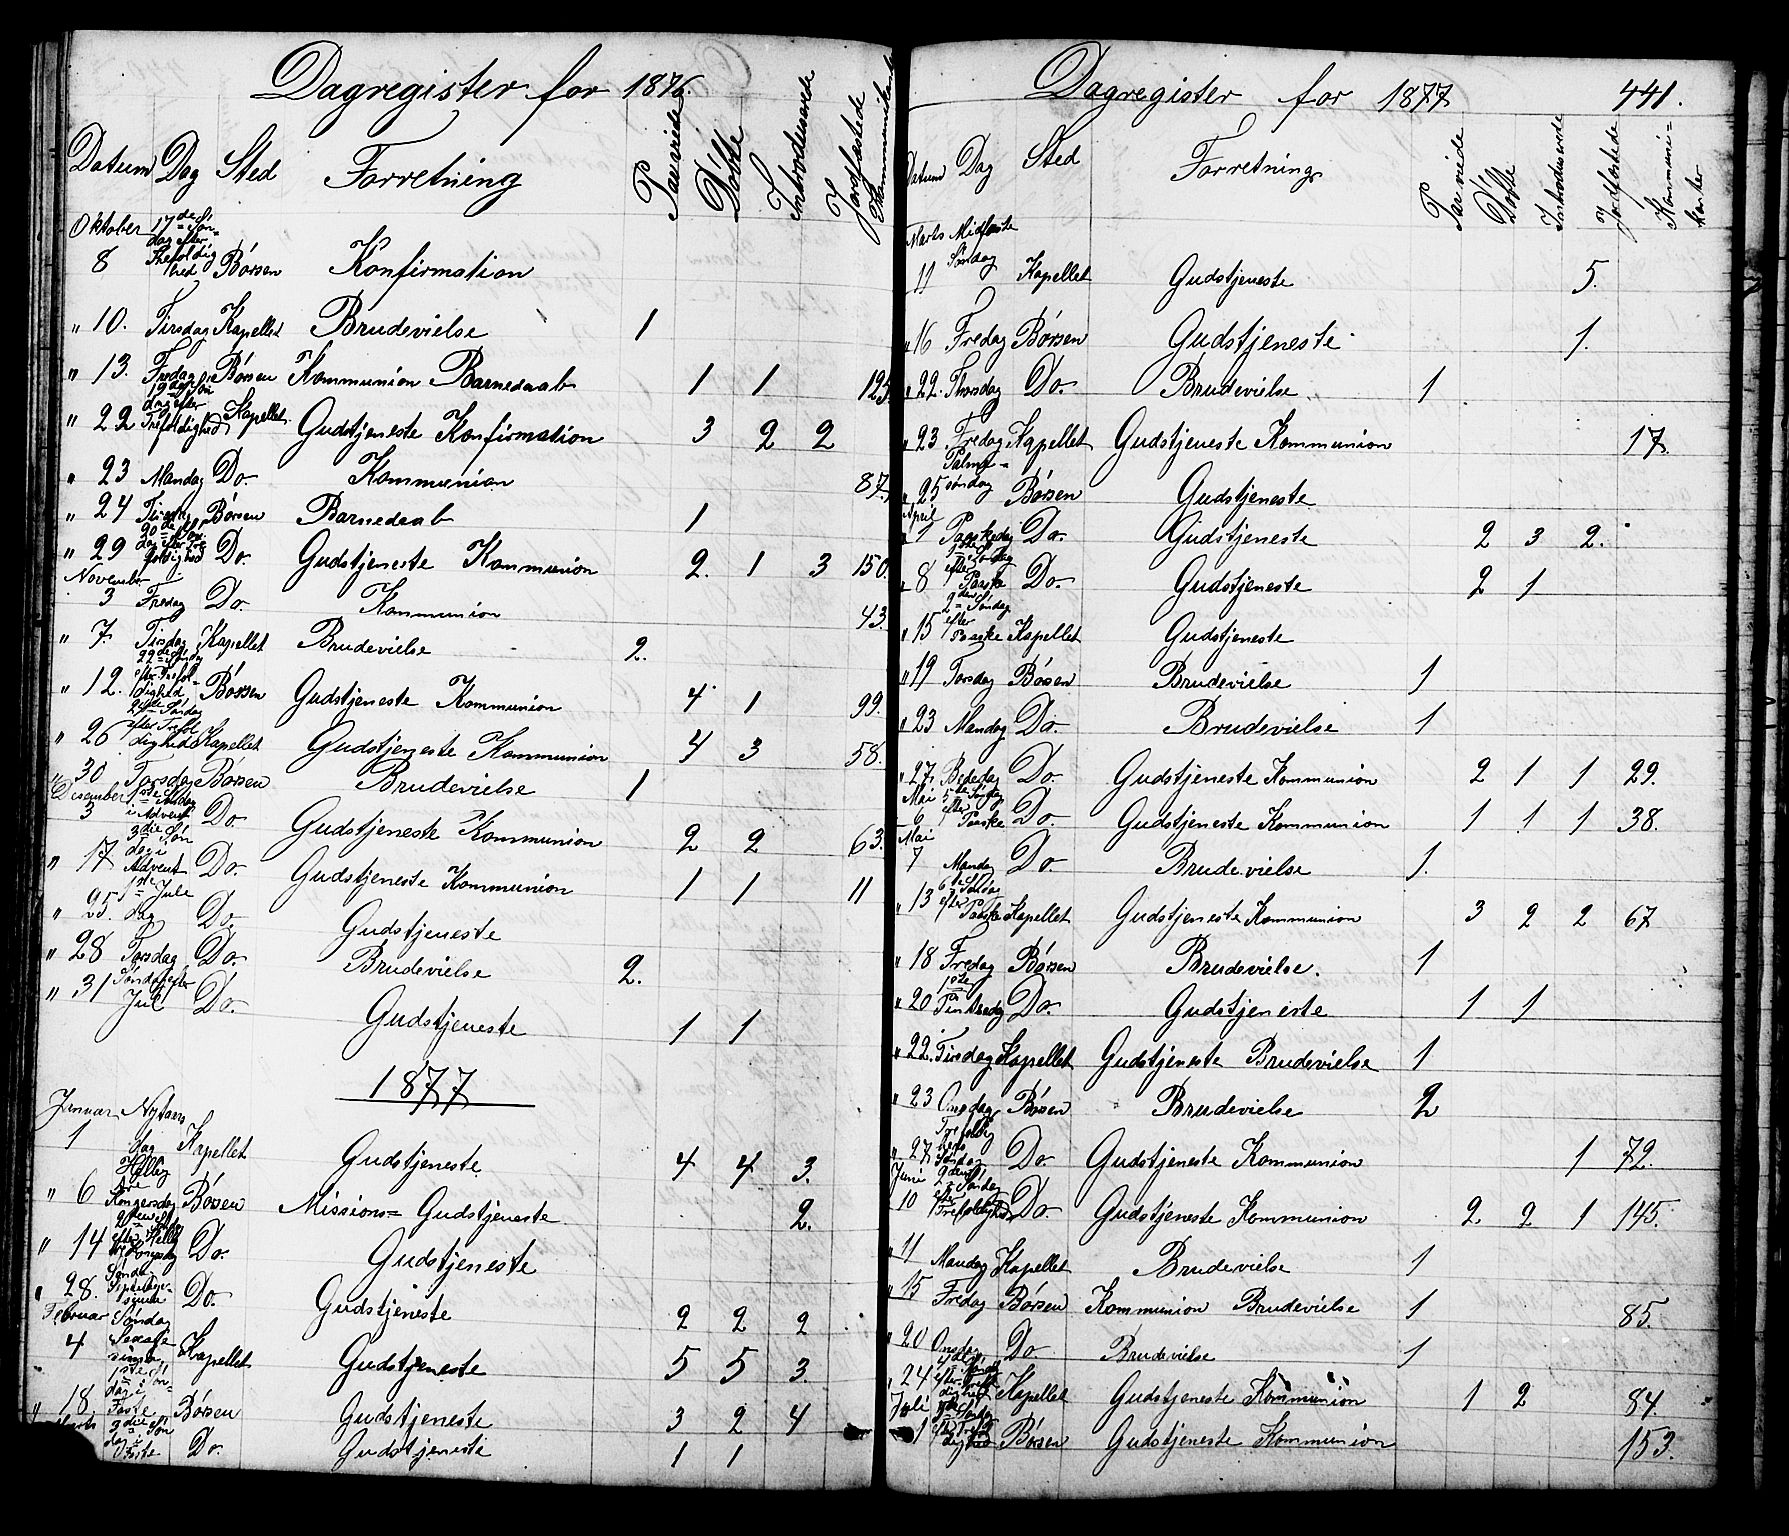 Dagregister for 1876.
Datum Dag Sted Forretning Parviede Döbte Introduserede Jordfæstede Kommunikanter
Oktober 17de Søn-
dag efter
8 Trefoldighed Börsen Konfirmation
" 10. Tirsdag Kapellet Brudevielse 1
" 13. Fredag Börsen Kommunion Barnedaab 1 1 125.
19de Søn
dag efter
" 22 Trefoldighed Kapellet Gudstjeneste Konfirmation 3 2 2
" 23 Mandag Do. Kommunion 87.
" 24 Tirsdag Börsen Barnedaab 1
20de Søn-
dag efter Tre
" 29 foldighed Do. Gudstjeneste Kommunion 2. 1 3 150.
November
3 Fredag Do. Kommunion 43.
" 7. Tirsdag Kapellet Brudevielse 2.
22de Søndag
efter Trefol-
" 12. dighed Börsen Gudstjeneste Kommunion 4 1 99.
24de Søndag
efter Trefol
" 26 dighed Kapellet Gudstjeneste Kommunion 4 3 58.
" 30 Torsdag Börsen Brudevielse 1
Desember 1ste Søndag
3 i Advent Do. Gudstjeneste Kommunion 2 2 63.
3die Søn
dag i
" 17 Advent Do. Gudstjeneste Kommunion 1 1 11
1ste Jule
" 25. dag Do. Gudstjeneste
" 28 Torsdag Do. Brudevielse 2.
" 31 Søndag efter
Jul Do. Gudstjeneste 1 1
1877
Januar Nytaars
1 dag Kapellet Gudstjeneste 4 4 3.
Hellig
tre
" 6 Kongersdag Börsen Missions= Gudstjeneste 2.
2den Søndag
efter Hellig
" 14 3 Kongersdag Do. Gudstjeneste
Søndag
" 28. Septuage-
sima Do. Gudstjeneste 2 2 2
Februar Søndag
4 Sexage
sima Kapellet Gudstjeneste 5 5 3.
1ste Søn-
dag i
" 18. Faste Börsen Gudstjeneste 3 2 4
Marts 3die Søn
dag i
Faste Do. Gudstjeneste 1 1
Dagregister for 1877 441.
Datum Dag Sted Forretning Parviede Döbte Introduserede Jordfæstede Kommuni=
kanter
Marts Midfaste
11 Søndag Kapellet Gudstjeneste 5.
" 16 Fredag Börsen Gudstjeneste 1.
" 22. Thorsdag Do. Brudevielse 1
" 23 Fredag Kapellet Gudstjeneste Kommunion 17.
Palme-
" 25 søndag Börsen Gudstjeneste
April
1 Paaskedag Do. Gudstjeneste 2 3 2.
1ste Søndag
efter
" 8 Paaske Do. Gudstjeneste 2 1
2den Søndag
efter
" 15 Paaske Kapellet Gudstjeneste
" 19 Torsdag Börsen Brudevielse 1
" 23 Mandag Do. Brudevielse 1
" 27. Bededag Do. Gudstjeneste Kommunion 2 1 1 29.
Mai 5te Søndag
efter
6 Paaske Do. Gudstjeneste Kommunion 1 1 1 38.
Mai
7 Mandag Do. Brudevielse 1.
6te Søndag
efter
" 13 Paaske Kapellet Gudstjeneste Kommunion 3 2 2 67
" 18 Fredag Börsen Brudevielse. 1
1ste
" 20 Pintsedag Do. Gudstjeneste 1 1
" 22. Tirsdag Kapellet Gudstjeneste Brudevielse 1
" 23 Onsdag Börsen Brudevielse 2
Trefoldig
heds
" 27 Søndag Do. Gudstjeneste Kommunion 1 72.
Juni 2den Søndag
efter
10 Trefoldighed Do. Gudstjeneste Kommunion 2 2 1 145.
" 11 Mandag Kapellet Brudevielse 1
" 15 Fredag Börsen Kommunion Brudevielse 1 85.
" 20 Onsdag Do Brudevielse 1
4de Søndag
efter Trefol
" 24 dighed Kapellet Gudstjeneste Kommunion 1 2 84.
Juli 5te Søndag
efter Trefol
1 dighed Börsen Gudstjeneste Kommunion 153.